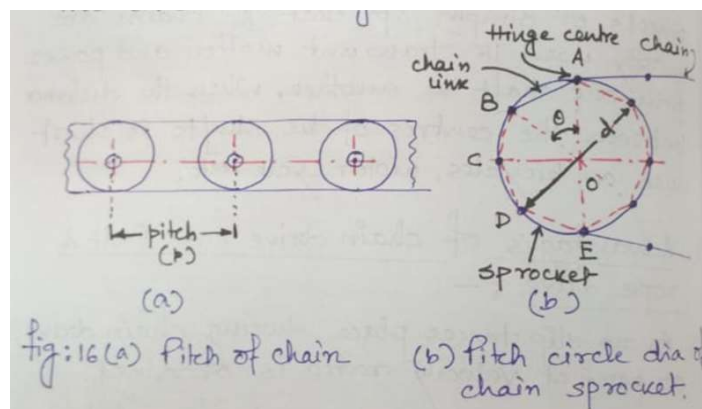 Hinge centre
chain
chain
link
A
B
θ
d
C
O
D
E
sprocket
pitch
(p)
(a)
(b)
fig:16(a) Pitch of chain
(b) Pitch circle dia of
chain sprocket.